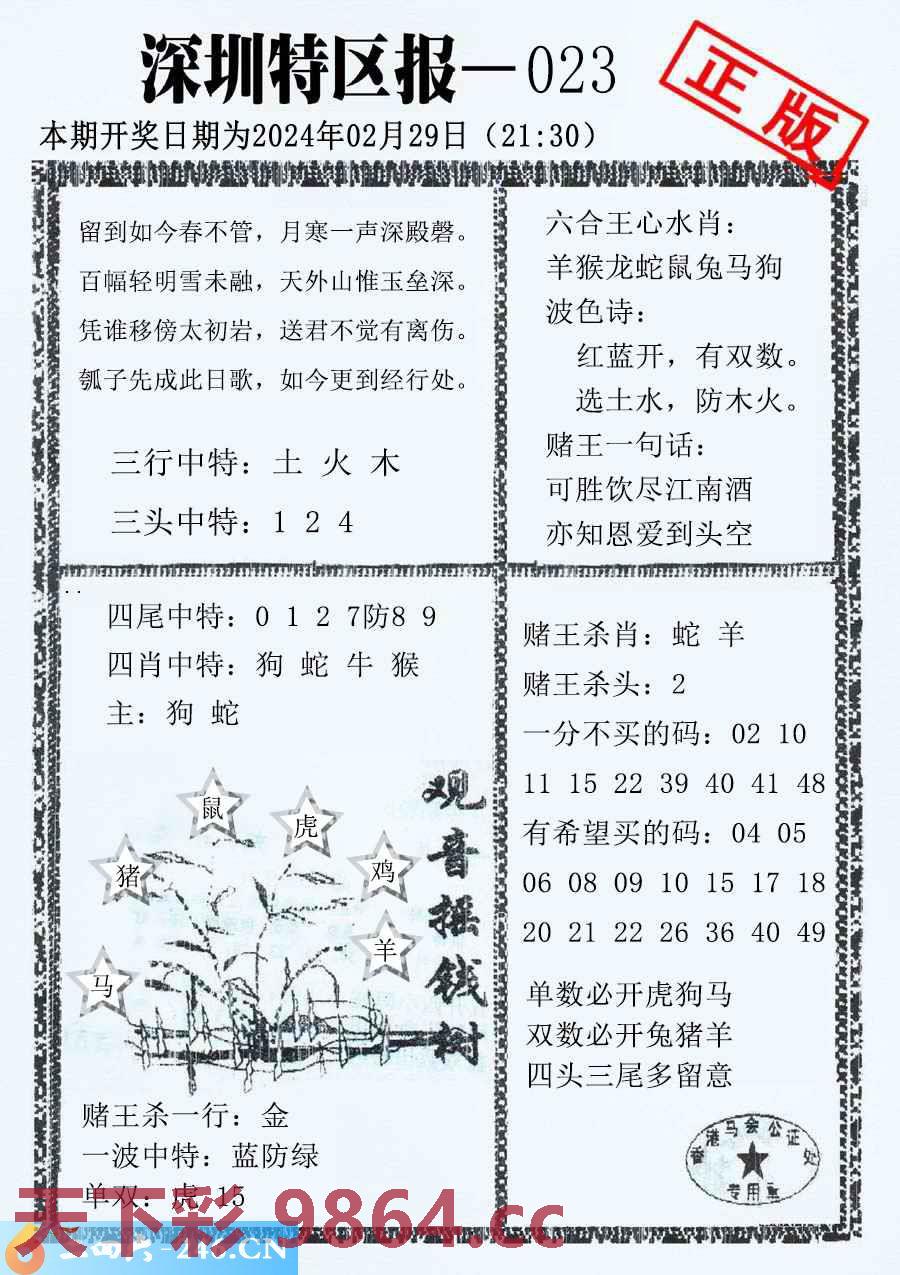 深圳特区报—023
正版
本期开奖日期为2024年02月29日（21:30）
留到如今春不管，月寒一声深殿磬。
百幅轻明雪未融，天外山惟玉垒深。
凭谁移傍太初岩，送君不觉有离伤。
瓠子先成此日歌，如今更到经行处。
三行中特：土 火 木
三头中特：1 2 4
六合王心水肖：
羊猴龙蛇鼠兔马狗
波色诗：
红蓝开，有双数。
选土水，防木火。
赌王一句话：
可胜饮尽江南酒
亦知恩爱到头空
四尾中特：0 1 2 7防8 9
四肖中特：狗 蛇 牛 猴
主：狗 蛇
观音摇钱树
鼠
虎
猪
鸡
羊
马
赌王杀一行：金
一波中特：蓝防绿
单双：虎 15
赌王杀肖：蛇 羊
赌王杀头：2
一分不买的码：02 10
11 15 22 39 40 41 48
有希望买的码：04 05
06 08 09 10 15 17 18
20 21 22 26 36 40 49
单数必开虎狗马
双数必开兔猪羊
四头三尾多留意
香港马会公证处
专用章
天下彩 9864.cc